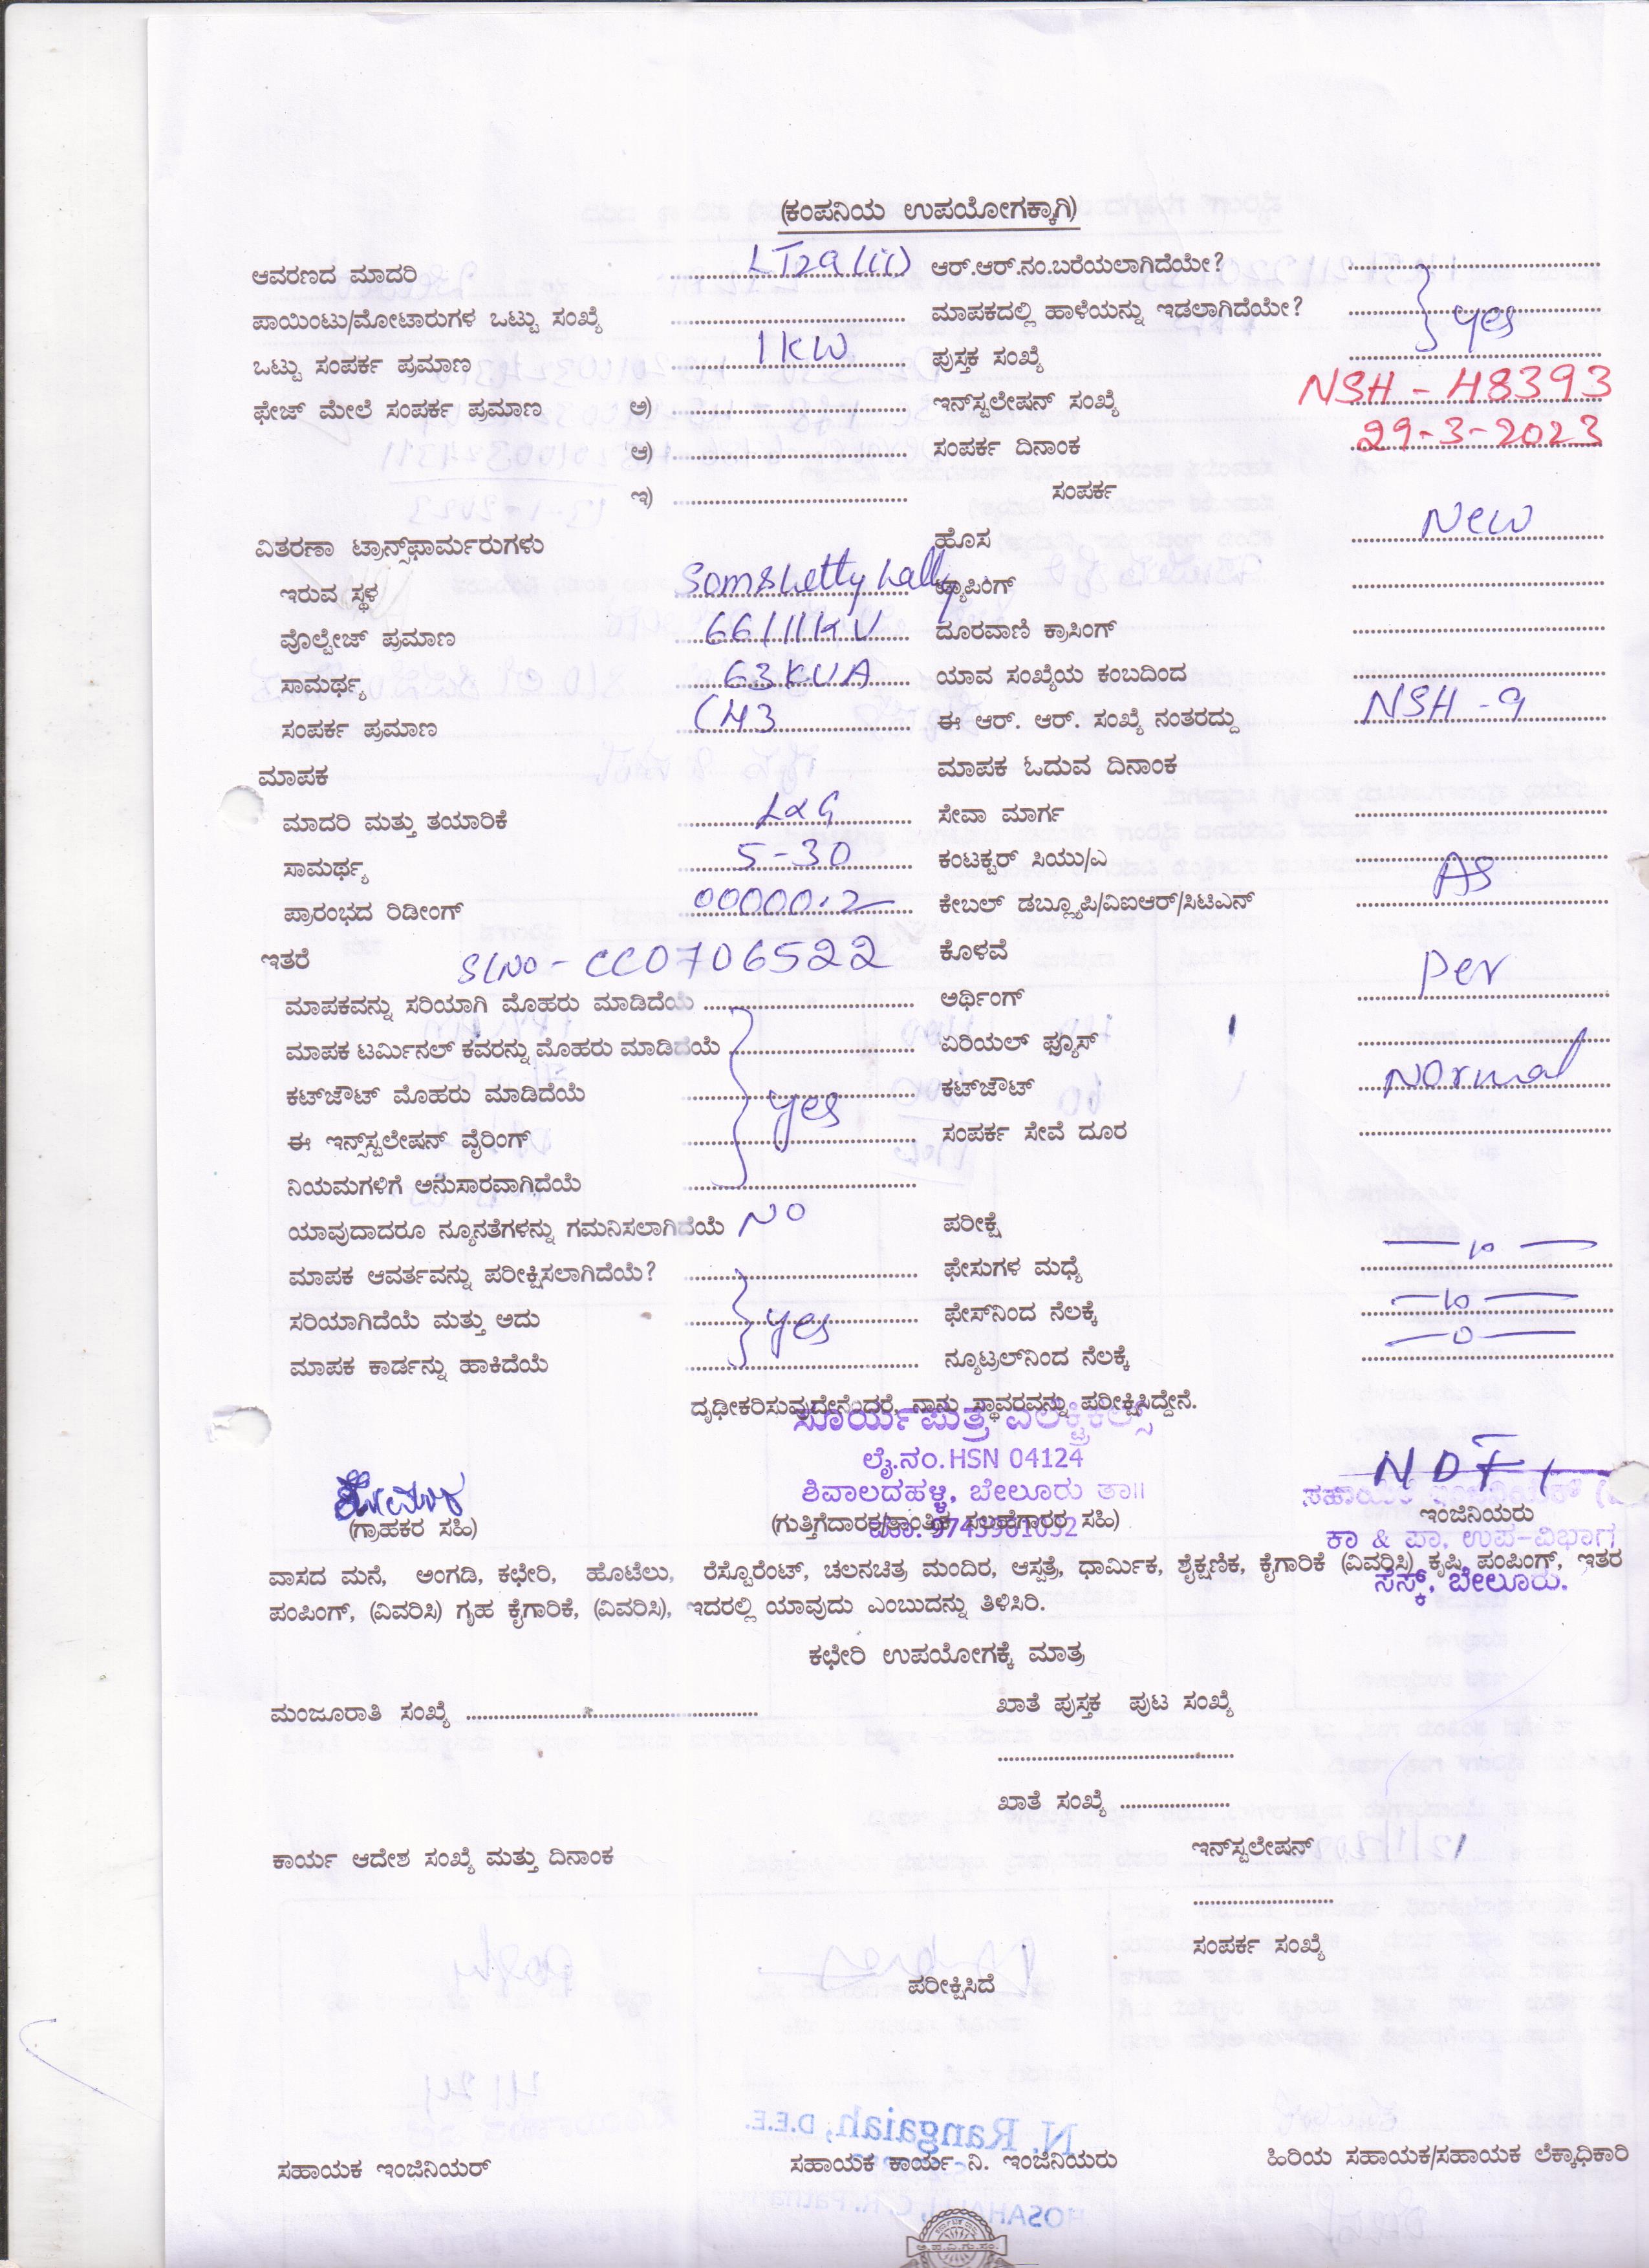 (ಕಂಪನಿಯ ಉಪಯೋಗಕ್ಕಾಗಿ)
ಆವರಣದ ಮಾದರಿ LT2a(ii) ಆರ್.ಆರ್.ನಂ.ಬರೆಯಲಾಗಿದೆಯೇ?
ಪಾಯಿಂಟು/ಮೋಟಾರುಗಳ ಒಟ್ಟು ಸಂಖ್ಯೆ ಮಾಪಕದಲ್ಲಿ ಹಾಳೆಯನ್ನು ಇಡಲಾಗಿದೆಯೇ? yes
ಒಟ್ಟು ಸಂಪರ್ಕ ಪ್ರಮಾಣ 1KW ಪುಸ್ತಕ ಸಂಖ್ಯೆ
ಫೇಜ್ ಮೇಲೆ ಸಂಪರ್ಕ ಪ್ರಮಾಣ ಅ) ಇನ್‌ಸ್ಟಲೇಷನ್ ಸಂಖ್ಯೆ NSH - 48393
ಆ) ಸಂಪರ್ಕ ದಿನಾಂಕ 29-3-2023
ಇ) ಸಂಪರ್ಕ
ವಿತರಣಾ ಟ್ರಾನ್ಸ್‌ಫಾರ್ಮರುಗಳು ಹೊಸ New
ಇರುವ ಸ್ಥಳ Somshettyhally ಟ್ಯಾಪಿಂಗ್
ವೊಲ್ಟೇಜ್ ಪ್ರಮಾಣ 66/11KV ದೂರವಾಣಿ ಕ್ರಾಸಿಂಗ್
ಸಾಮರ್ಥ್ಯ 63KVA ಯಾವ ಸಂಖ್ಯೆಯ ಕಂಬದಿಂದ
ಸಂಪರ್ಕ ಪ್ರಮಾಣ ಈ ಆರ್. ಆರ್. ಸಂಖ್ಯೆ ನಂತರದ್ದು NSH - 9
ಮಾಪಕ ಮಾಪಕ ಓದುವ ದಿನಾಂಕ
ಮಾದರಿ ಮತ್ತು ತಯಾರಿಕೆ L&G ಸೇವಾ ಮಾರ್ಗ
ಸಾಮರ್ಥ್ಯ 5-30 ಕಂಟಕ್ಟರ್ ಸಿಯು/ಎ
ಪ್ರಾರಂಭದ ರಿಡೀಂಗ್ 00000.2 ಕೇಬಲ್ ಡಬ್ಲ್ಯೂಪಿ/ವಿಐಆರ್/ಸಿಟಿಎನ್ As
ಇತರೆ Sl No - CC0706522 ಕೊಳವೆ
ಮಾಪಕವನ್ನು ಸರಿಯಾಗಿ ಮೊಹರು ಮಾಡಿದೆಯೆ ಅರ್ಥಿಂಗ್ per
ಮಾಪಕ ಟರ್ಮಿನಲ್ ಕವರನ್ನು ಮೊಹರು ಮಾಡಿದೆಯೆ ಏರಿಯಲ್ ಫ್ಯೂಸ್
ಕಟ್‌ಜೌಟ್ ಮೊಹರು ಮಾಡಿದೆಯೆ yes ಕಟ್‌ಜೌಟ್ Normal
ಈ ಇನ್ಸ್‌ಸ್ಟಲೇಷನ್ ವೈರಿಂಗ್ ಸಂಪರ್ಕ ಸೇವೆ ದೂರ
ನಿಯಮಗಳಿಗೆ ಅನುಸಾರವಾಗಿದೆಯೆ
ಯಾವುದಾದರೂ ನ್ಯೂನತೆಗಳನ್ನು ಗಮನಿಸಲಾಗಿದೆಯೆ NO ಪರೀಕ್ಷೆ
ಮಾಪಕ ಆವರ್ತವನ್ನು ಪರೀಕ್ಷಿಸಲಾಗಿದೆಯೆ? ಫೇಸುಗಳ ಮಧ್ಯೆ — 10 —
ಸರಿಯಾಗಿದೆಯೆ ಮತ್ತು ಅದು yes ಫೇಸ್‌ನಿಂದ ನೆಲಕ್ಕೆ — 10 —
ಮಾಪಕ ಕಾರ್ಡನ್ನು ಹಾಕಿದೆಯೆ ನ್ಯೂಟ್ರಲ್‌ನಿಂದ ನೆಲಕ್ಕೆ — 0 —
ದೃಢೀಕರಿಸುವುದೇನೆಂದರೆ, ನಾನು ಸ್ಥಾವರವನ್ನು ಪರೀಕ್ಷಿಸಿದ್ದೇನೆ.
ಸೂರ್ಯಪುತ್ರ ಎಲೆಕ್ಟ್ರಿಕಲ್ಸ್
ಲೈ.ನಂ.HSN 04124
ಶಿವಾಲದಹಳ್ಳಿ, ಬೇಲೂರು ತಾ||
(ಗ್ರಾಹಕರ ಸಹಿ) (ಗುತ್ತಿಗೆದಾರರ/ತಾಂತ್ರಿಕ ಸಲಹೆಗಾರರ ಸಹಿ) ಇಂಜಿನಿಯರು
ಕಾ & ಪಾ. ಉಪ-ವಿಭಾಗ
ಸೆಸ್ಕ್, ಬೇಲೂರು.
ವಾಸದ ಮನೆ, ಅಂಗಡಿ, ಕಛೇರಿ, ಹೊಟೆಲು, ರೆಸ್ಟೊರೆಂಟ್, ಚಲನಚಿತ್ರ ಮಂದಿರ, ಆಸ್ಪತ್ರೆ, ಧಾರ್ಮಿಕ, ಶೈಕ್ಷಣಿಕ, ಕೈಗಾರಿಕೆ (ವಿವರಿಸಿ) ಕೃಷಿ, ಪಂಪಿಂಗ್, ಇತರ
ಪಂಪಿಂಗ್, (ವಿವರಿಸಿ) ಗೃಹ ಕೈಗಾರಿಕೆ, (ವಿವರಿಸಿ), ಇದರಲ್ಲಿ ಯಾವುದು ಎಂಬುದನ್ನು ತಿಳಿಸಿರಿ.
ಕಛೇರಿ ಉಪಯೋಗಕ್ಕೆ ಮಾತ್ರ
ಮಂಜೂರಾತಿ ಸಂಖ್ಯೆ ಖಾತೆ ಪುಸ್ತಕ ಪುಟ ಸಂಖ್ಯೆ
ಖಾತೆ ಸಂಖ್ಯೆ
ಕಾರ್ಯ ಆದೇಶ ಸಂಖ್ಯೆ ಮತ್ತು ದಿನಾಂಕ ಇನ್‌ಸ್ಟಲೇಷನ್
ಸಂಪರ್ಕ ಸಂಖ್ಯೆ
ಪರೀಕ್ಷಿಸಿದೆ
ಸಹಾಯಕ ಇಂಜಿನಿಯರ್ ಸಹಾಯಕ ಕಾರ್ಯ ನಿ. ಇಂಜಿನಿಯರು ಹಿರಿಯ ಸಹಾಯಕ/ಸಹಾಯಕ ಲೆಕ್ಕಾಧಿಕಾರಿ